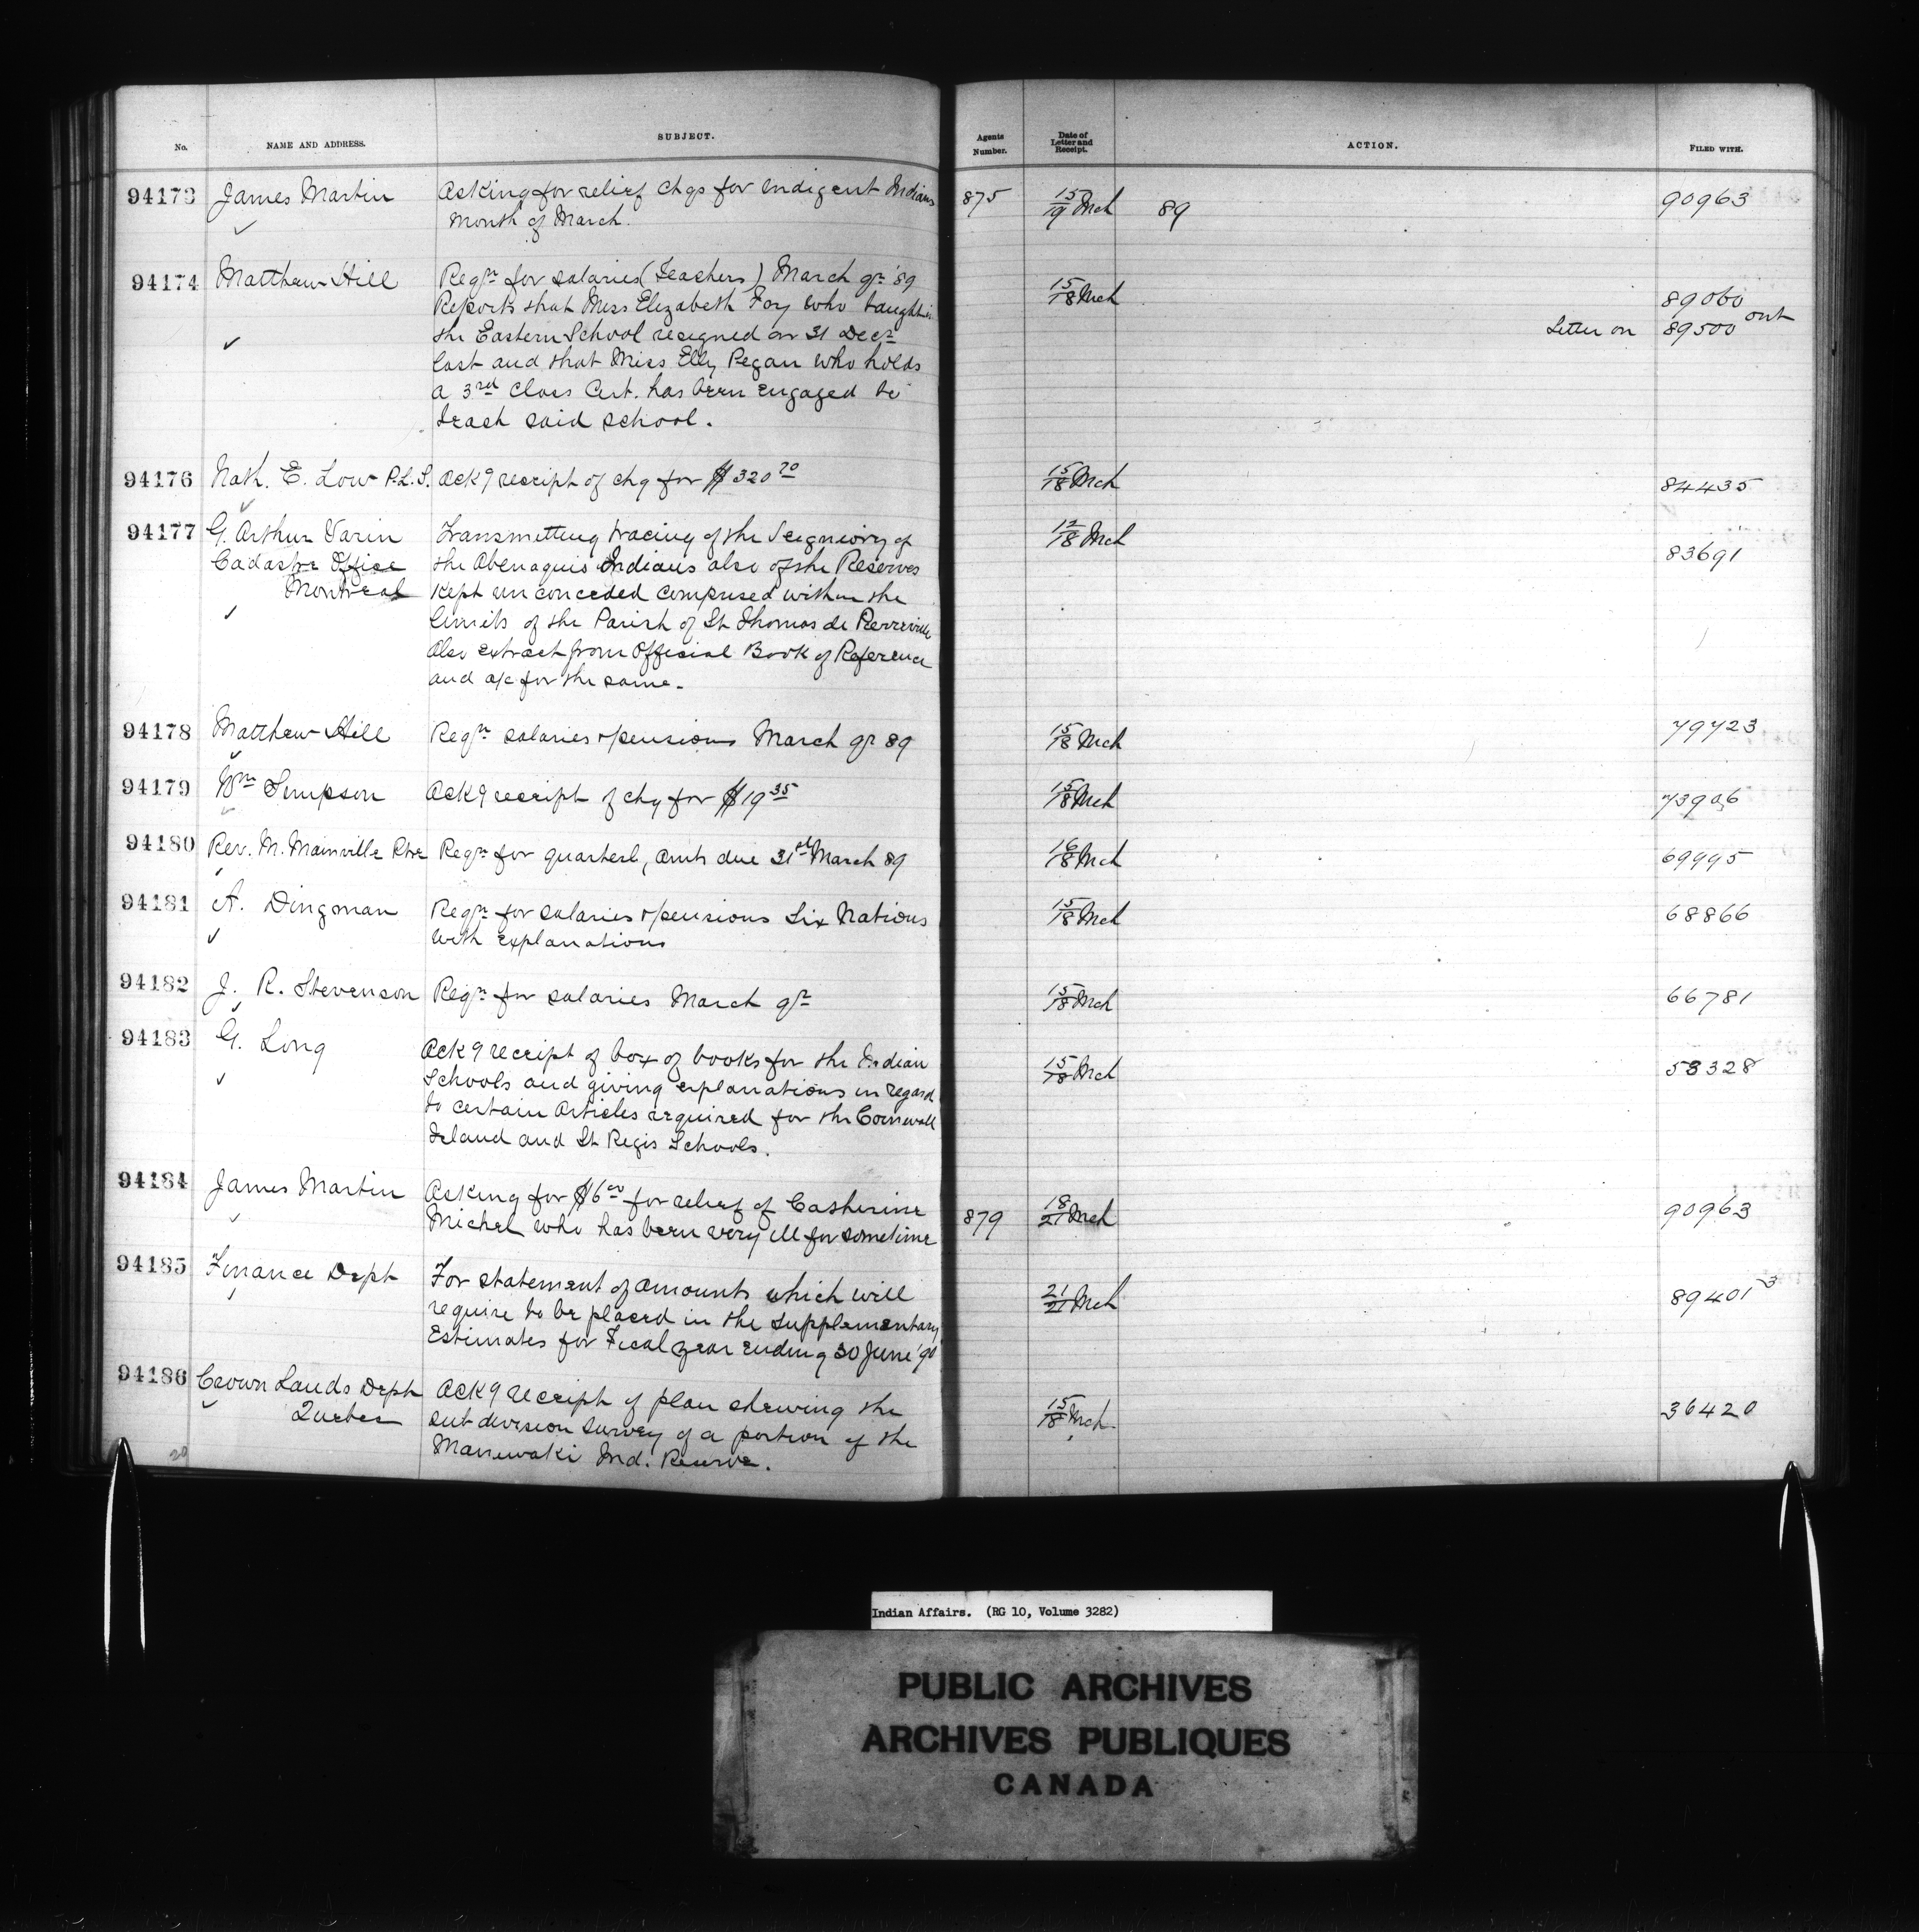 No. NAME AND ADDRESS. SUBJECT. Agents Number. Date of Letter and Receipt. ACTION. FILED WITH.
94173 James Martin Asking for relief chqs for indigent Indians 875 15/19 Mch 89 90963
Month of March.
94174 Matthew Hill Reqn for salaries (Teachers) March qr '89 15/18 Mch 89060
Reports that Miss Elizabeth Foy who taught in Letter on 89500 out
the Eastern School resigned on 31 Decr
last and that Miss Elly Pegan who holds
a 3rd Class Cert. has been engaged to
teach said school.
94176 Nath. E. Low P.L.S. Ackg receipt of chq for $320 70 15/18 Mch 84435
94177 G. Arthur Varin Transmitting tracing of the Seigniory of 12/18 Mch 83691
Cadastre Office the Abenaquis Indians also of the Reserves
Montreal kept unconceded comprised within the
limits of the Parish of St Thomas de Pierreville
Also extract from Official Book of Reference
and a/c for the same.
94178 Matthew Hill Reqn salaries & pensions March qr 89 15/18 Mch 79723
94179 Wm Simpson Ackg receipt of chq for $19 35 15/18 Mch 73906
94180 Rev. M. Mainville Ptre Reqn for quarterly amts due 31st March 89 16/18 Mch 69995
94181 A. Dingman Reqn for salaries & pensions Six Nations 15/18 Mch 68866
with explanations
94182 J. R. Stevenson Reqn for salaries March qr 15/18 Mch 66781
94183 G. Long Ackg receipt of box of books for the Indian 15/18 Mch 58328
Schools and giving explanations in regard
to certain articles required for the Cornwall
Island and St Regis Schools.
94184 James Martin Asking for $6 00 for relief of Catherine 879 18/21 Mch 90963
Michel who has been very ill for sometime
94185 Finance Dept For statement of amounts which will 21/21 Mch 89401-3
require to be placed in the Supplementary
Estimates for Fiscal year ending 30 June '90
94186 Crown Lands Dept Ackg receipt of plan shewing the 15/18 Mch 36420
Quebec sub division survey of a portion of the
Maniwaki Ind. Reserve.
20
Indian Affairs. (RG 10, Volume 3282)
PUBLIC ARCHIVES
ARCHIVES PUBLIQUES
CANADA